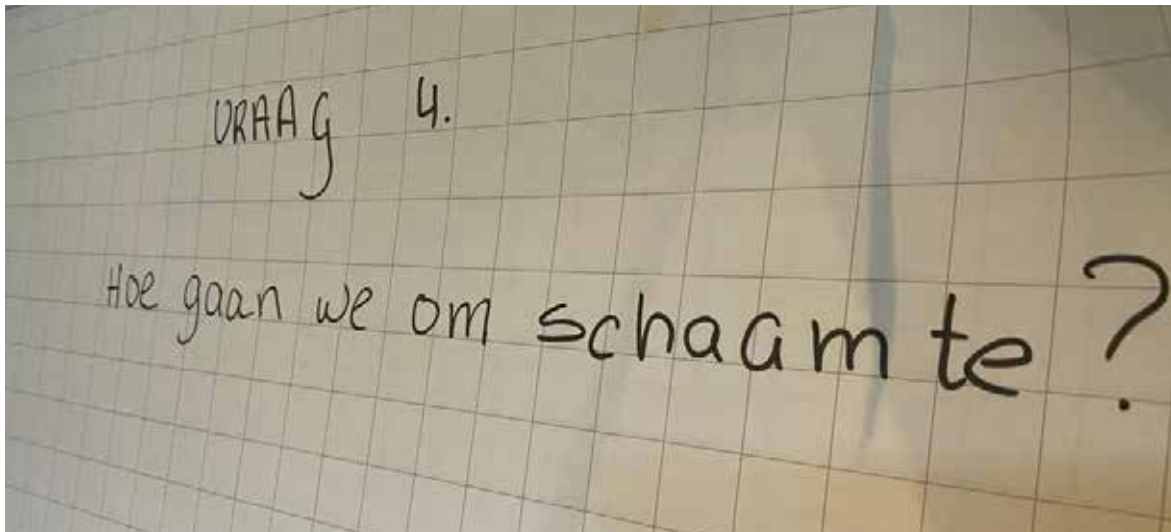 VRAAG 4.
Hoe gaan we om schaamte?